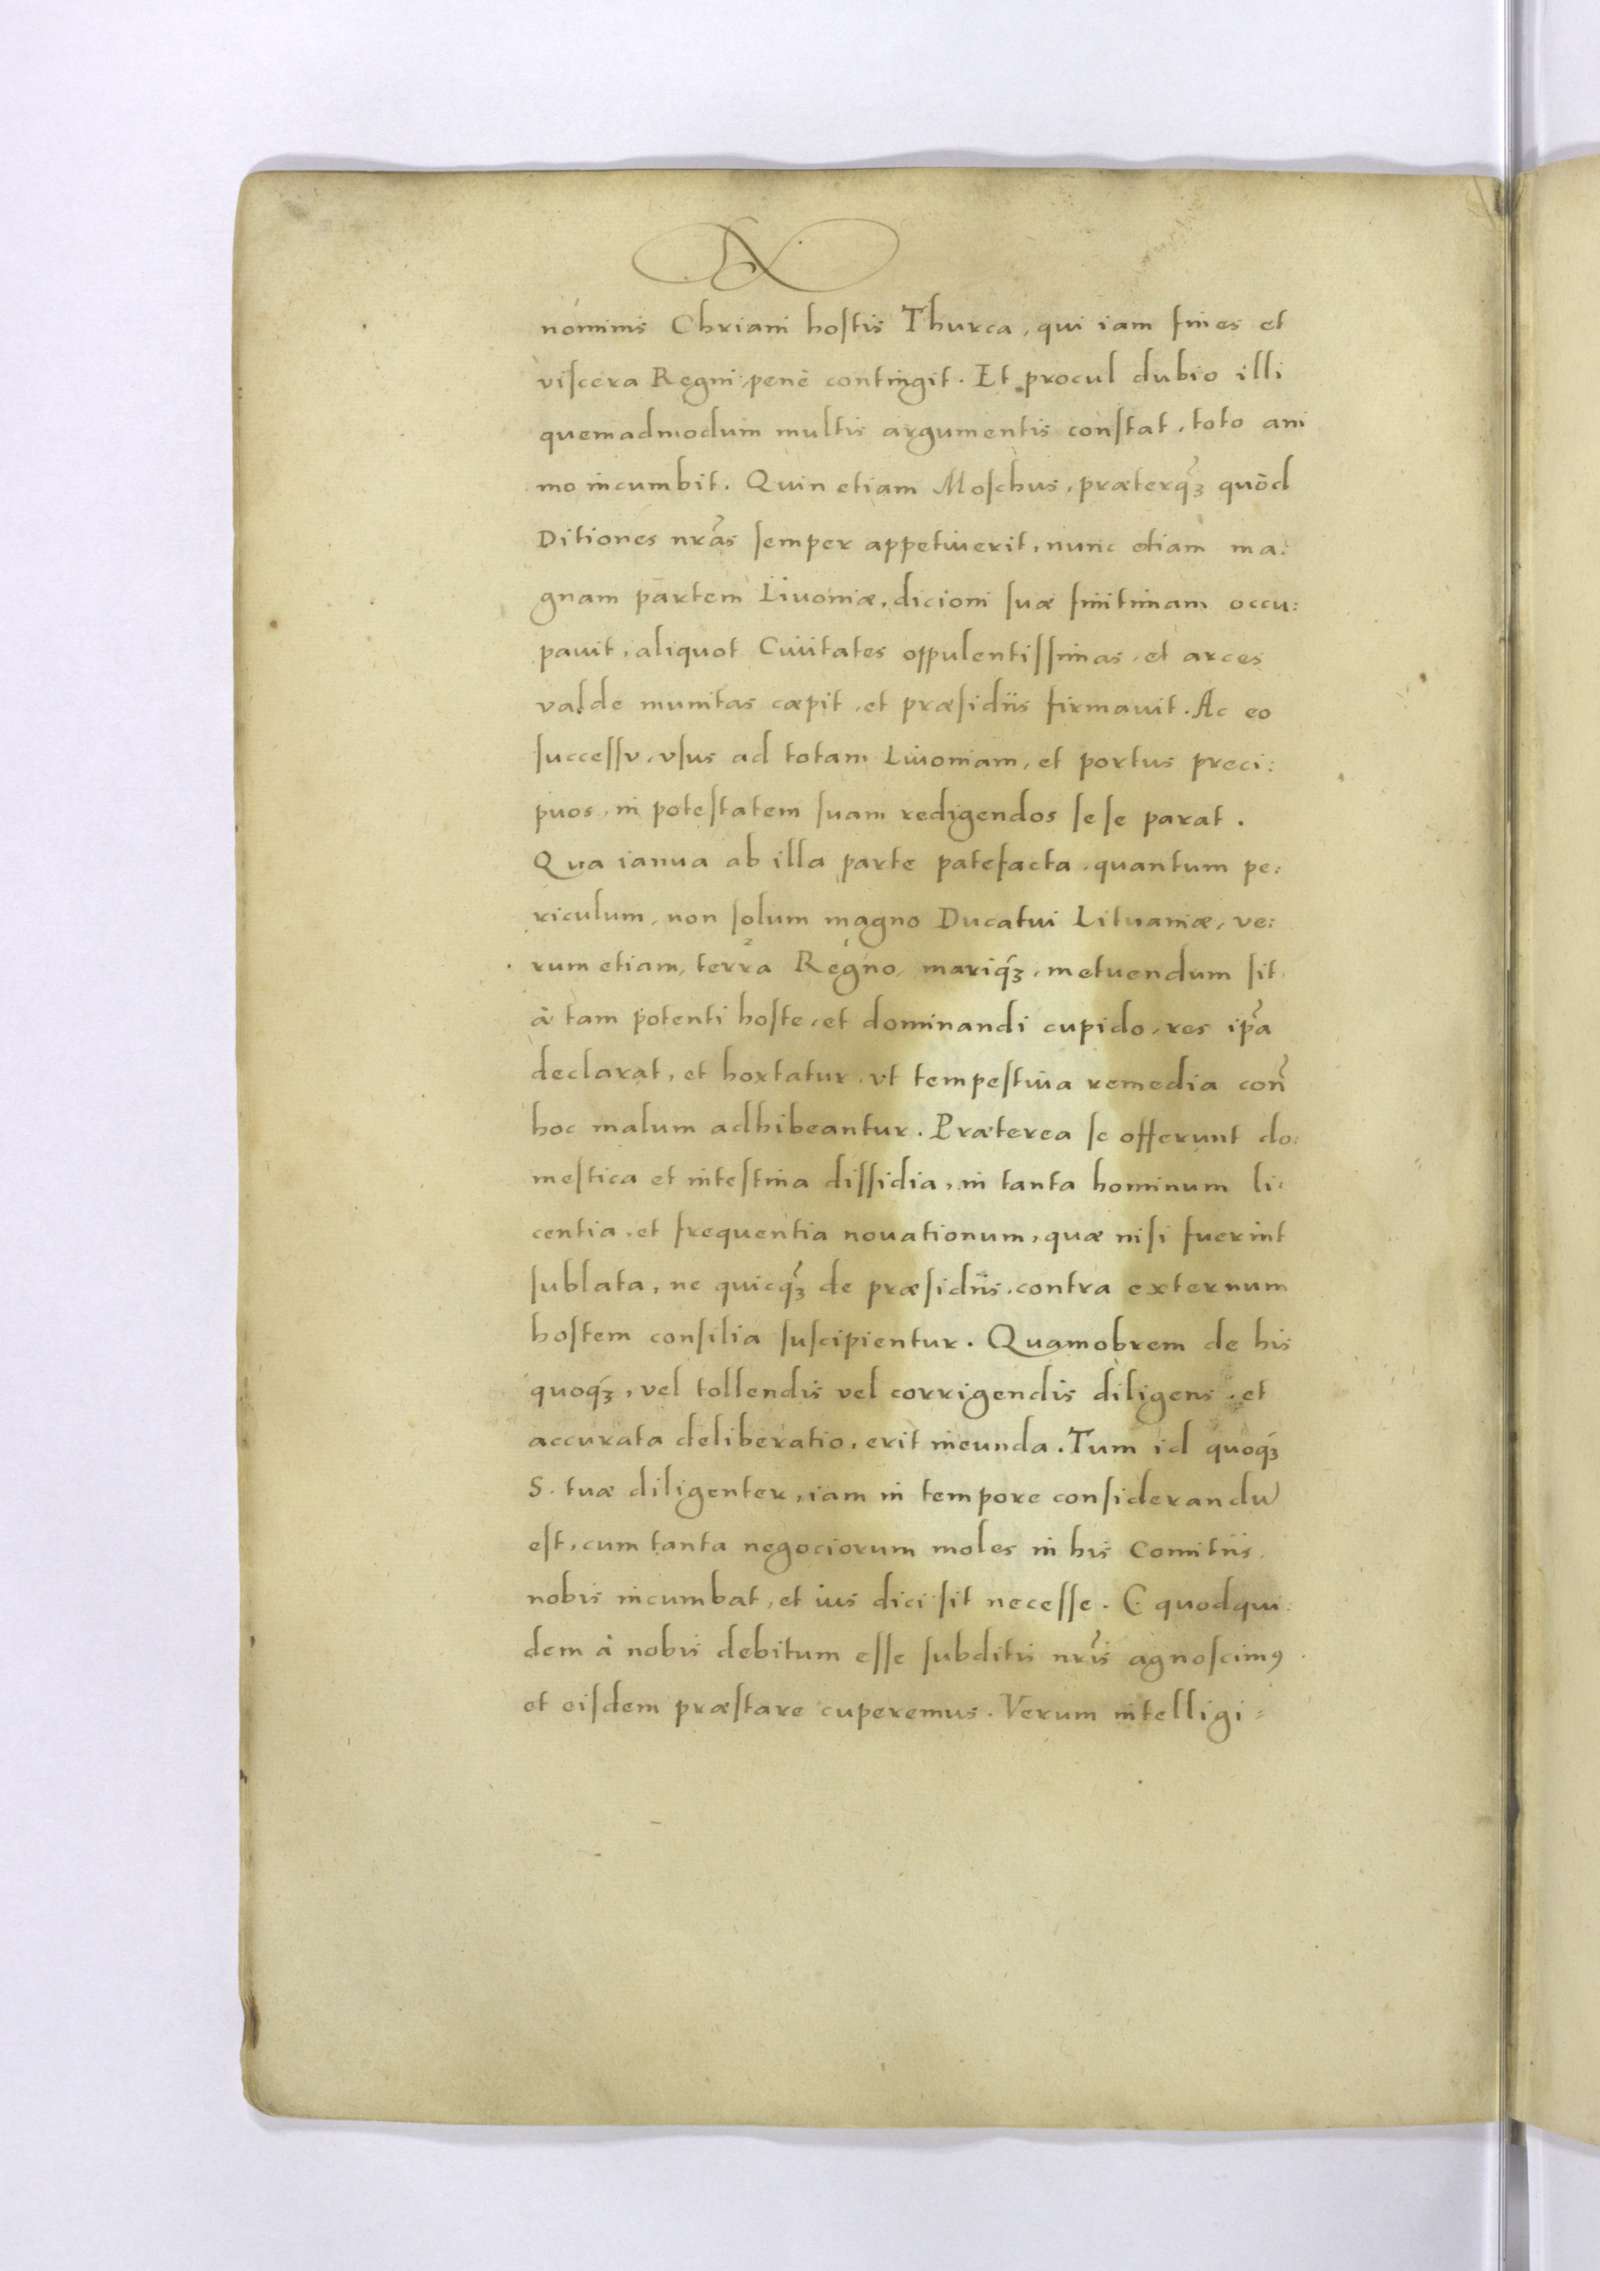 nominis Chriani hostis Thurca, qui iam fines et
viscera Regni penè contingit. Et procul dubio illi
quemadmodum multis argumentis constat, toto ani
mo incumbit. Quin etiam Moschus, præterq̃ꝫ quòd
Ditiones nrãs semper appetiuerit, nunc etiam ma:
gnam partem Liuoniæ, dicioni suæ finitimam occu:
pauit, aliquot Ciuitates oppulentissimas, et arces
valde munitas cæpit, et præsidiis firmauit. Ac eo
successu, vsus ad totam Liuoniam, et portus preci:
puos, in potestatem suam redigendos sese parat.
Qua ianua ab illa parte patefacta, quantum pe:
riculum, non solum magno Ducatui Lituaniæ, ve:
rum etiam, terra Regno, mariq́ꝫ, metuendum sit
à tam potenti hoste, et dominandi cupido, res ip̃a
declarat, et hortatur, vt tempestiua remedia coñ
hoc malum adhibeantur. Præterea se offerunt do:
mestica et intestina dissidia, in tanta hominum li:
centia, et frequentia nouationum, quæ nisi fuerint
sublata, ne quicq̃ꝫ de præsidiis, contra externum
hostem consilia suscipientur. Quamobrem de his
quoq́ꝫ, vel tollendis vel corrigendis diligens, et
accurata deliberatio, erit ineunda. Tum id quoq́ꝫ
S. tuæ diligenter, iam in tempore considerandū
est, cum tanta negociorum moles in his Comitiis,
nobis incumbat, et ius dici sit necesse. C quodqui:
dem à nobis debitum esse subditis nrĩs agnoscimꝰ
et eisdem præstare cuperemus. Verum intelligi=